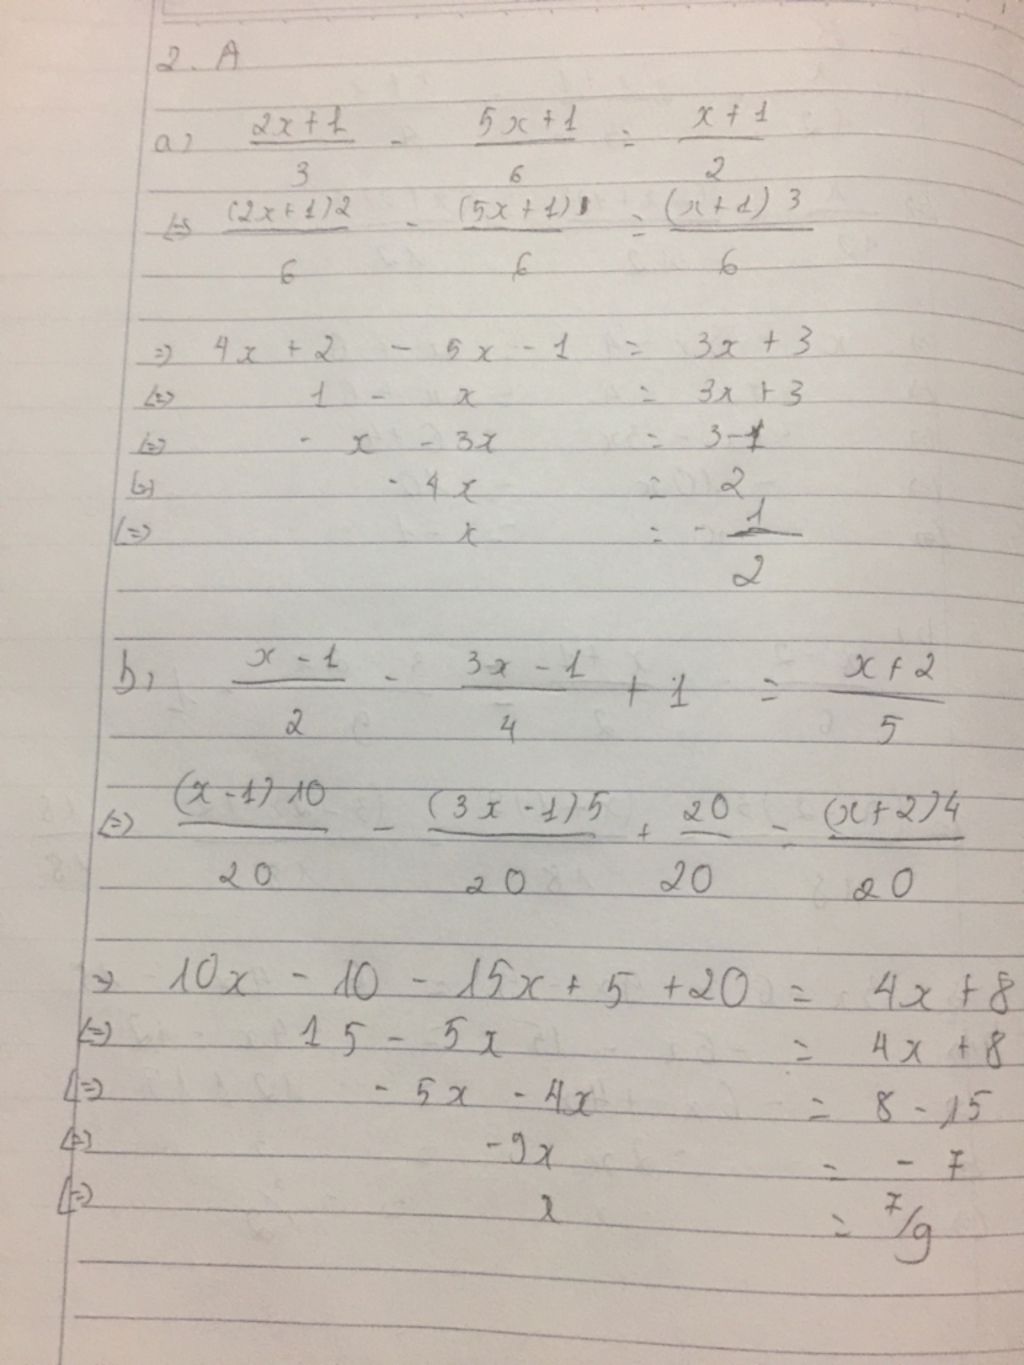 2. A
a) (2x+1)/3 - (5x+1)/6 = (x+1)/2
(=) (2x+1)2/6 - (5x+1)1/6 = (x+1)3/6
=) 4x + 2 - 5x - 1 = 3x + 3
(=) 1 - x = 3x + 3
(=) - x - 3x = 3-1
(=) - 4x = 2
(=) x = - 1/2
b, (x-1)/2 - (3x-1)/4 + 1 = (x+2)/5
(=) (x-1)10/20 - (3x-1)5/20 + 20/20 = (x+2)4/20
=) 10x - 10 - 15x + 5 + 20 = 4x + 8
(=) 15 - 5x = 4x + 8
(=) - 5x - 4x = 8 - 15
(=) -9x = - 7
(=) x = 7/9